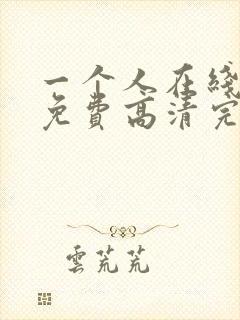 一个人在线
免费高清完
雲荒荒